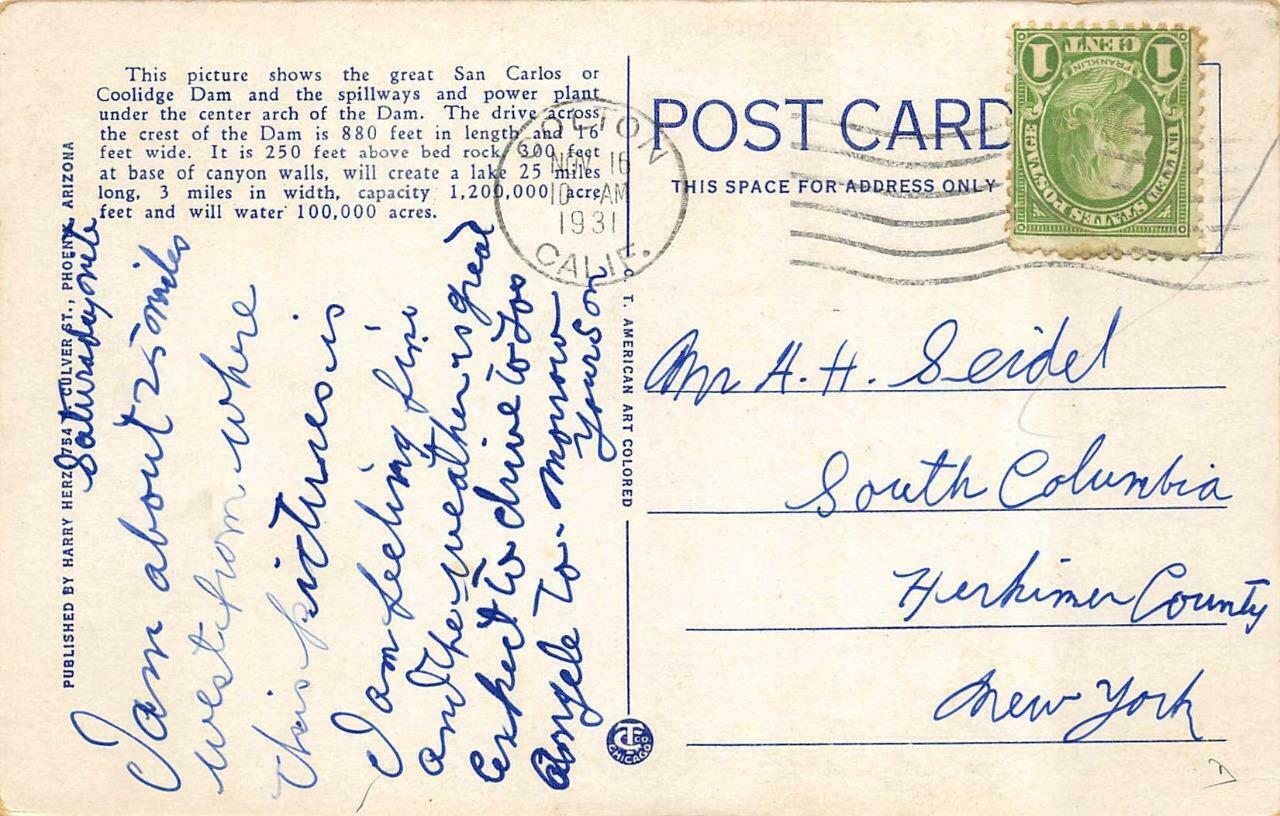 This picture shows the great San Carlos or
Coolidge Dam and the spillways and power plant
under the center arch of the Dam. The drive across
the crest of the Dam is 880 feet in length and 16
feet wide. It is 250 feet above bed rock, 300 feet
at base of canyon walls, will create a lake 25 miles
long, 3 miles in width, capacity 1,200,000 acre
feet and will water 100,000 acres.
PUBLISHED BY HARRY HERZ, 754 CULVER ST., PHOENIX, ARIZONA
Saturday nite
I am about 25 miles
west from where
this picture is
I am feeling fine
and the weather is great
expect to drive to Los
Angele to-morrow
Your Son
C. T. AMERICAN ART COLORED
CHICAGO
COLTON
NOV 16
10 AM
1931
CALIF.
POST CARD
THIS SPACE FOR ADDRESS ONLY
UNITED STATES POSTAGE
FRANKLIN
1 CENT 1
Mr H. H. Seidel
South Columbia
Herkimer County
New York